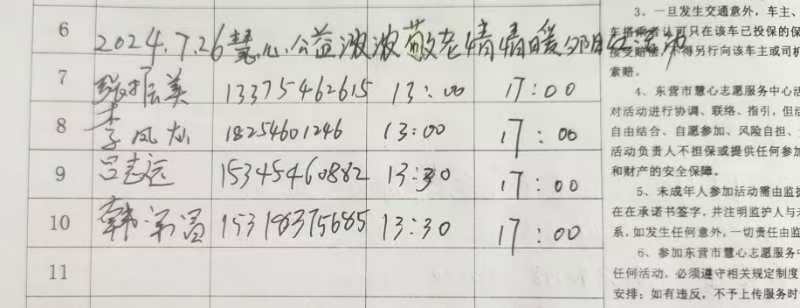 6
2024.7.26慧心公益激浓敬老情情暖夕阳红活动
7 张振美 13375462615 13:00 17:00
8 李凤灿 18254601246 13:00 17:00
9 吕志远 15345460882 13:30 17:00
10 韩 15319375685 13:30 17:00
11
3、一旦发生交通意外，车主、
车搭乘者认可只在该车已投保的保
接受赔偿，不得另行向该车主或司机
索赔。
4、东营市慧心志愿服务中心活
对活动进行协调、联络、指引，但活
自由结合、自愿参加、风险自担、
活动负责人不担保或提供任何参加
和财产的安全保障。
5、未成年人参加活动需由监护
在在承诺书签字，并注明监护人与未
系，如发生任何意外，一切责任由监
6、参加东营市慧心志愿服务中
任何活动，必须遵守相关规定制度
安排；如有违反，不予上传服务时